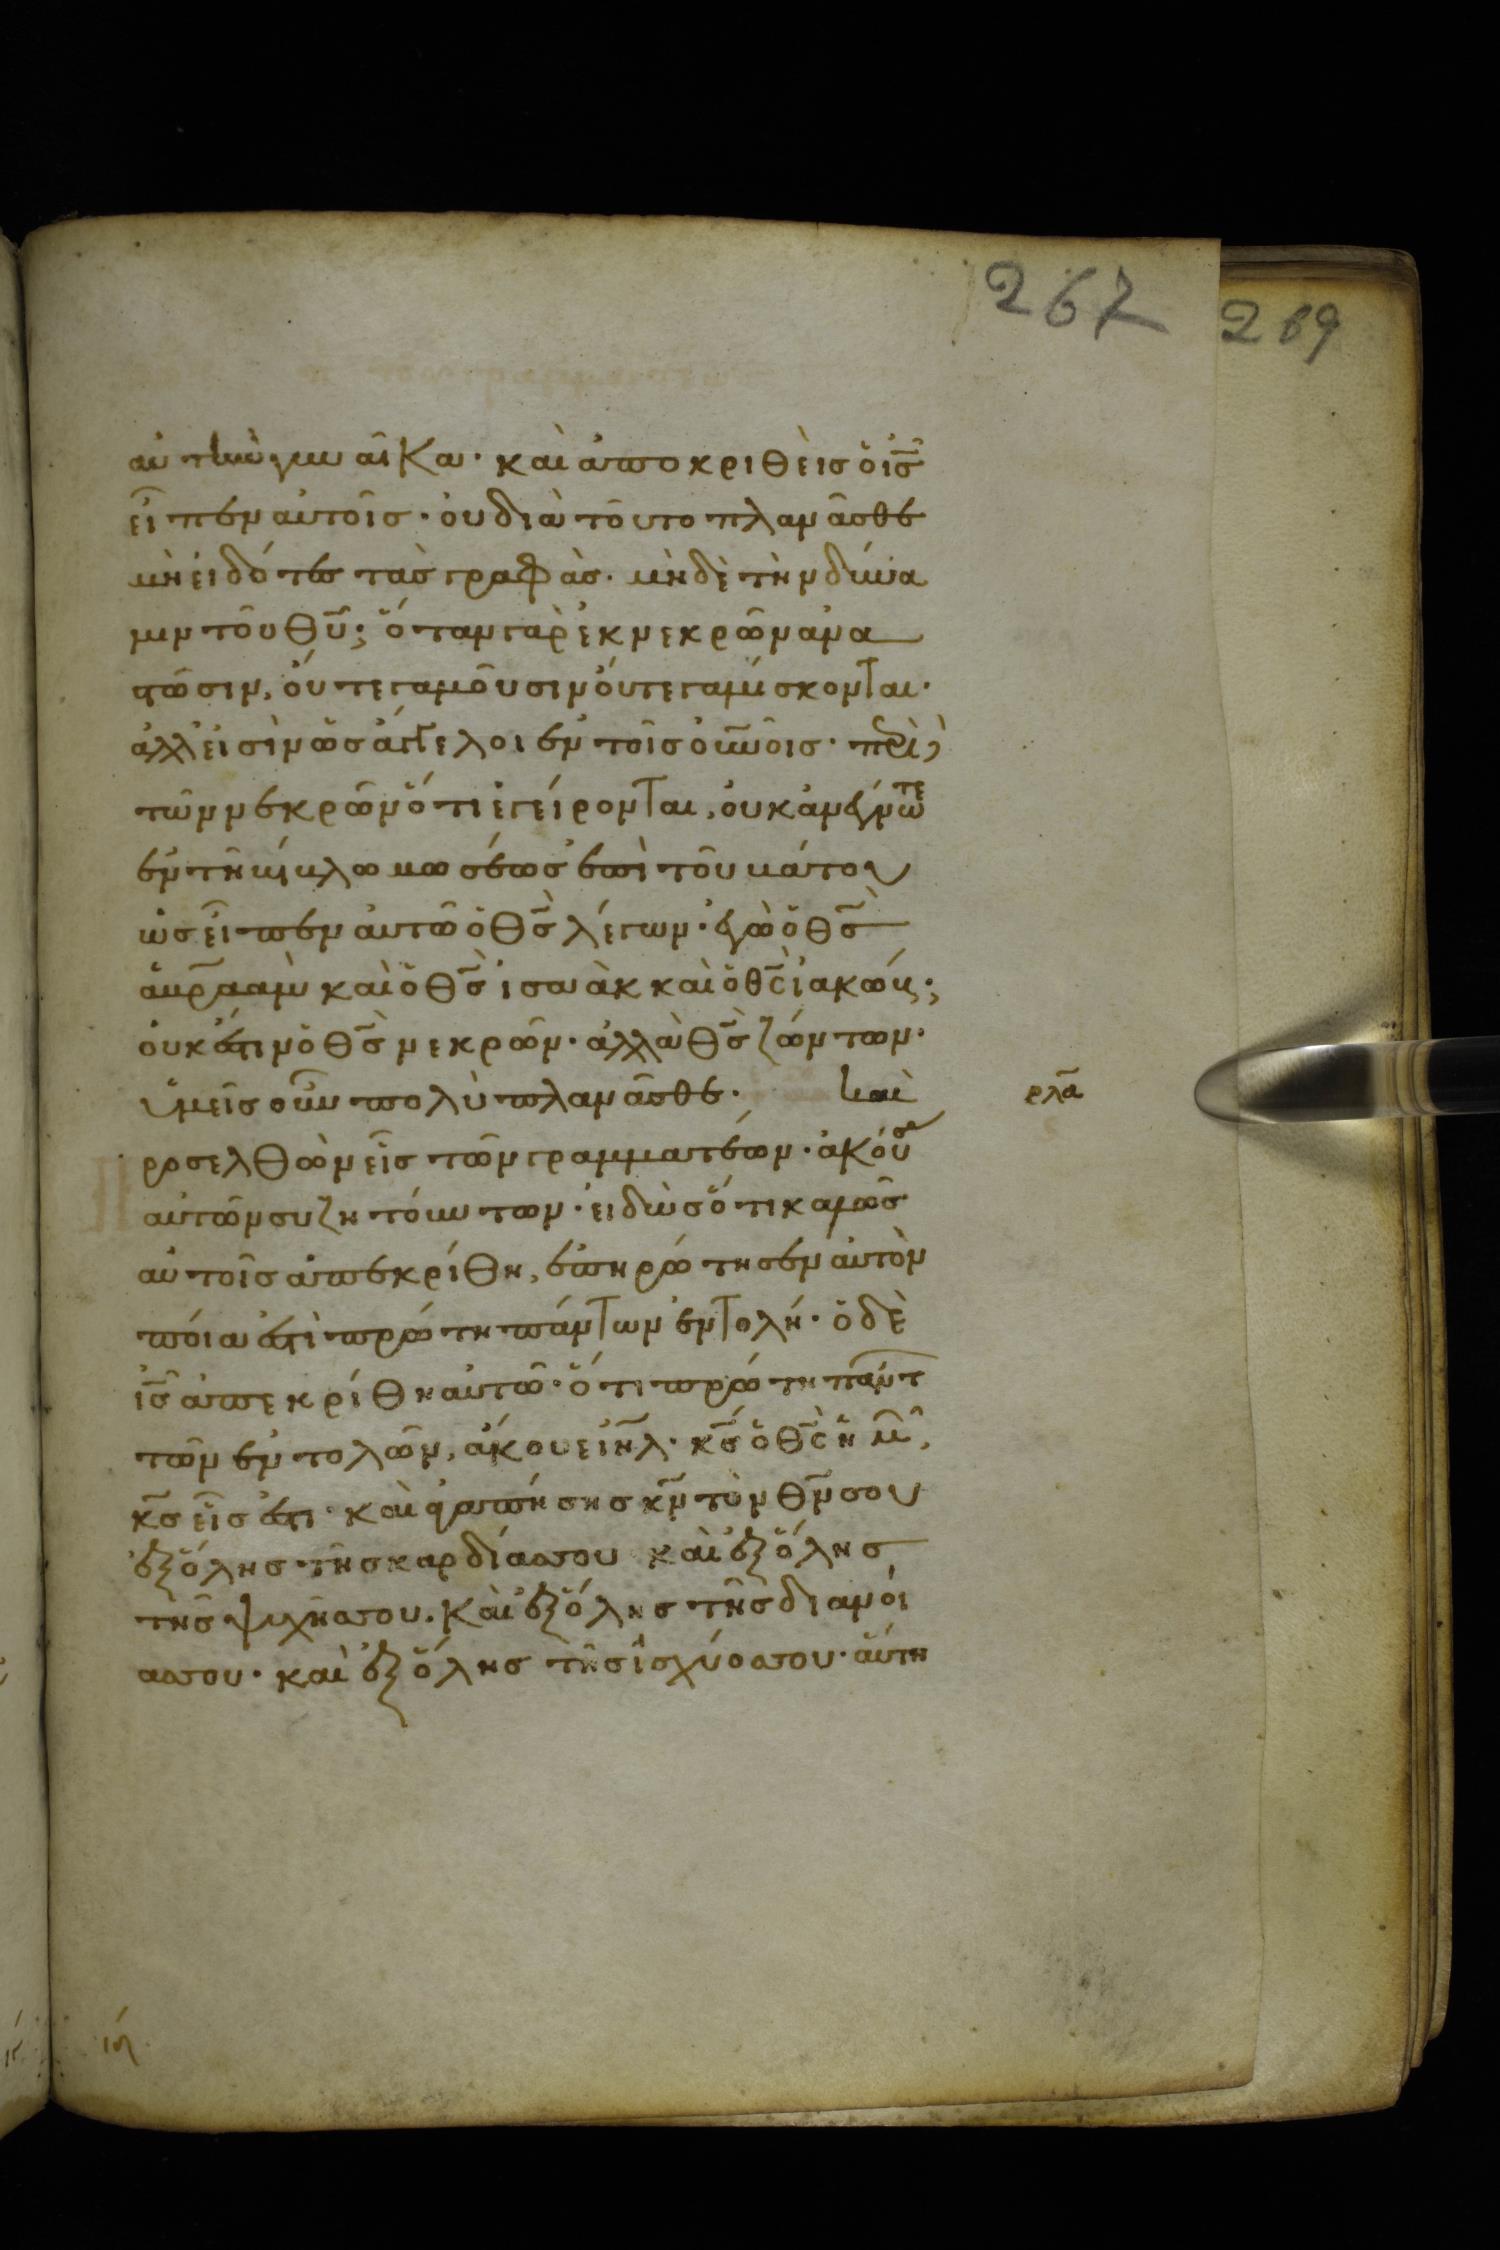 267
269
αὐτὴν γυναῖκα· καὶ ἀποκριθεὶς ὁ ις
εἶπεν αὐτοῖς· οὐ διὰ τοῦτο πλανᾶσθε
μὴ εἰδότες τὰς γραφὰς· μὴδὲ τὴν δύνα
μιν τοῦ θυ; ὅταν γὰρ ἐκ νεκρῶν ἀνα
στῶσιν, οὔτε γαμοῦσιν οὔτε γαμίσκονται·
ἀλλ εἰσὶν ὡς ἄγγελοι ἐν τοῖς οὐνοῖς· περὶ
τῶν νεκρῶν ὅτι ἐγείρονται, οὐκ ἀνέγνωτε
ἐν τῆ βίβλω μωσέως ἐπὶ τοῦ βάτου
ὡς εἶπεν αὐτῶ ὁ θς λέγων· ἐγὼ ὁ θς
ἁβρααμ καὶ ὁ θς ἰσαὰκ καὶ ὁ θς ἰακώβ;
οὐκ ἔστιν ὁ θς νεκρῶν· ἀλλὰ θς ζώντων·
ὑμεῖς οὖν πολὺ πλανᾶσθε· καὶ ρλα
ροσελθὼν εἷς τῶν γραμματέων· ἀκούσα
αὐτῶν συζητούντων· εἰδὼς ὅτι καλῶς
αὐτοῖς ἀπεκρίθη, ἐπηρώτησεν αὐτὸν
ποία ἐστὶ πρώτη πάντων ἐντολή· ὁ δὲ
ις ἀπεκρίθη αὐτῶ· ὅτι πρώτη πάντ
τῶν ἐντολῶν, ἄκουε ιηλ· κς ὁ θς ἡμῶν,
κς εἷς ἐστι· καὶ ἀγαπήσης κν τὸν θν σου
ἐξ ὅλης τῆς καρδίας σου καὶ ἐξ ὅλης
τῆς ψυχῆς σου. καὶ ἐξ ὅλης τῆς διανοί
ας σου· καὶ ἐξ ὅλης τῆς ἰσχύος σου· αὕτη